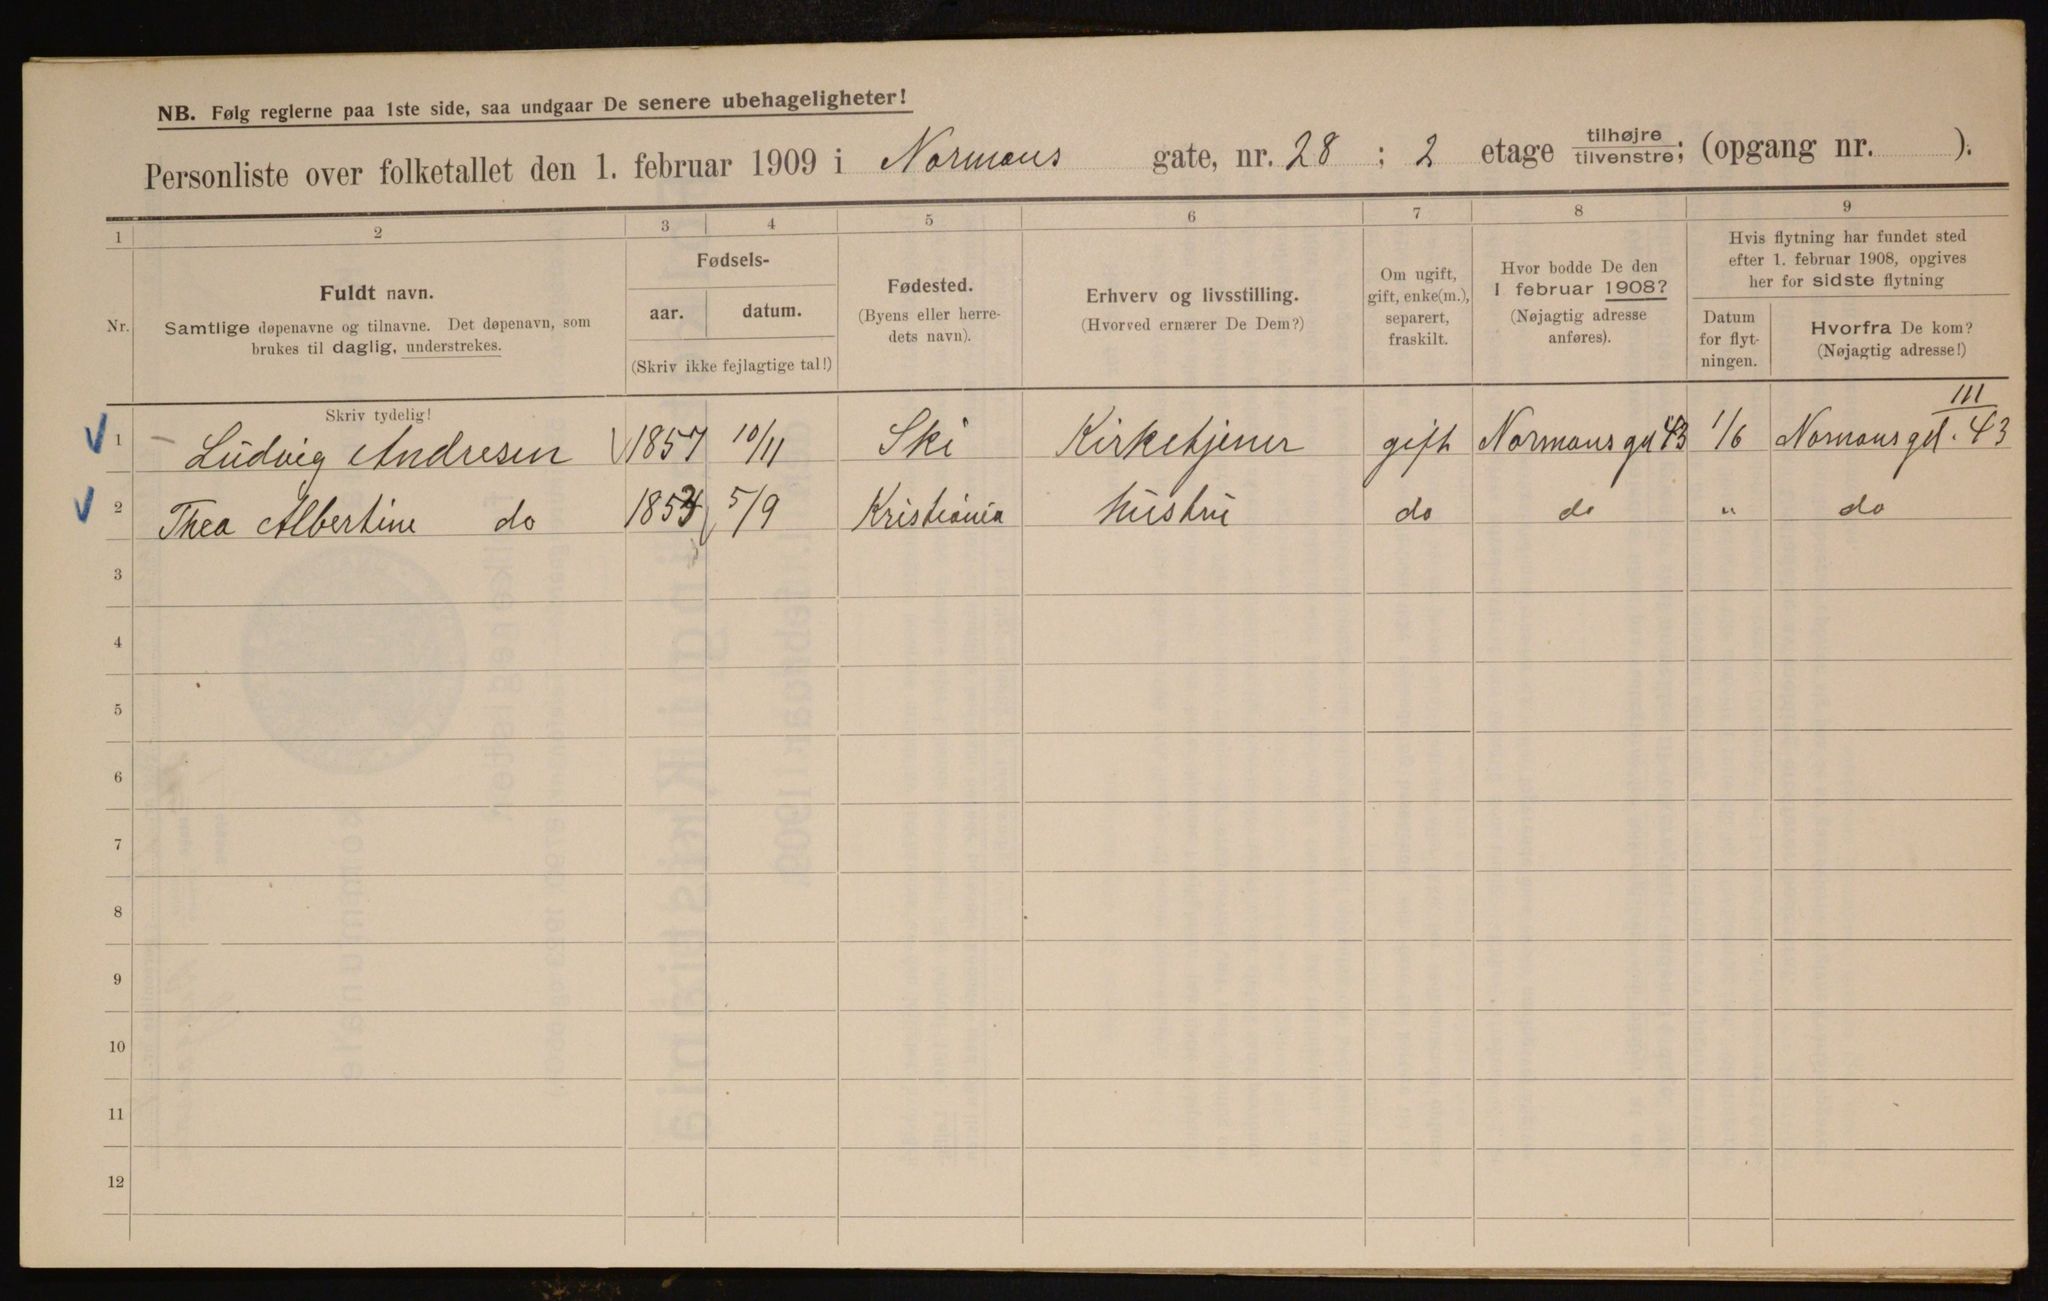 NB. Følg reglerne paa 1ste side, saa undgaar De senere ubehageligheter!
Personliste over folketallet den 1. februar 1909 i Normans gate, nr. 28 ; 2 etage tilhøjre/tilvenstre; (opgang nr. ).
1 2 3 4 5 6 7 8 9
Nr.
Fuldt navn.
Samtlige døpenavne og tilnavne. Det døpenavn, som
brukes til daglig, understrekes.
Fødsels-
aar. datum.
(Skriv ikke fejlagtige tal!)
Fødested.
(Byens eller herre-
dets navn).
Erhverv og livsstilling.
(Hvorved ernærer De Dem?)
Om ugift,
gift, enke(m.),
separert,
fraskilt.
Hvor bodde De den
1 februar 1908?
(Nøjagtig adresse
anføres).
Hvis flytning har fundet sted
efter 1. februar 1908, opgives
her for sidste flytning
Datum
for flyt-
ningen.
Hvorfra De kom?
(Nøjagtig adresse!)
Skriv tydelig!
1 Ludvig Andresen 1857 10/11 Ski Kirketjener gift Normans gd 43 1/6 Normans gd. 43 III
2 Thea Albertine do 5/9 Kristiania Hustru do do " do
3
4
5
6
7
8
9
10
11
12